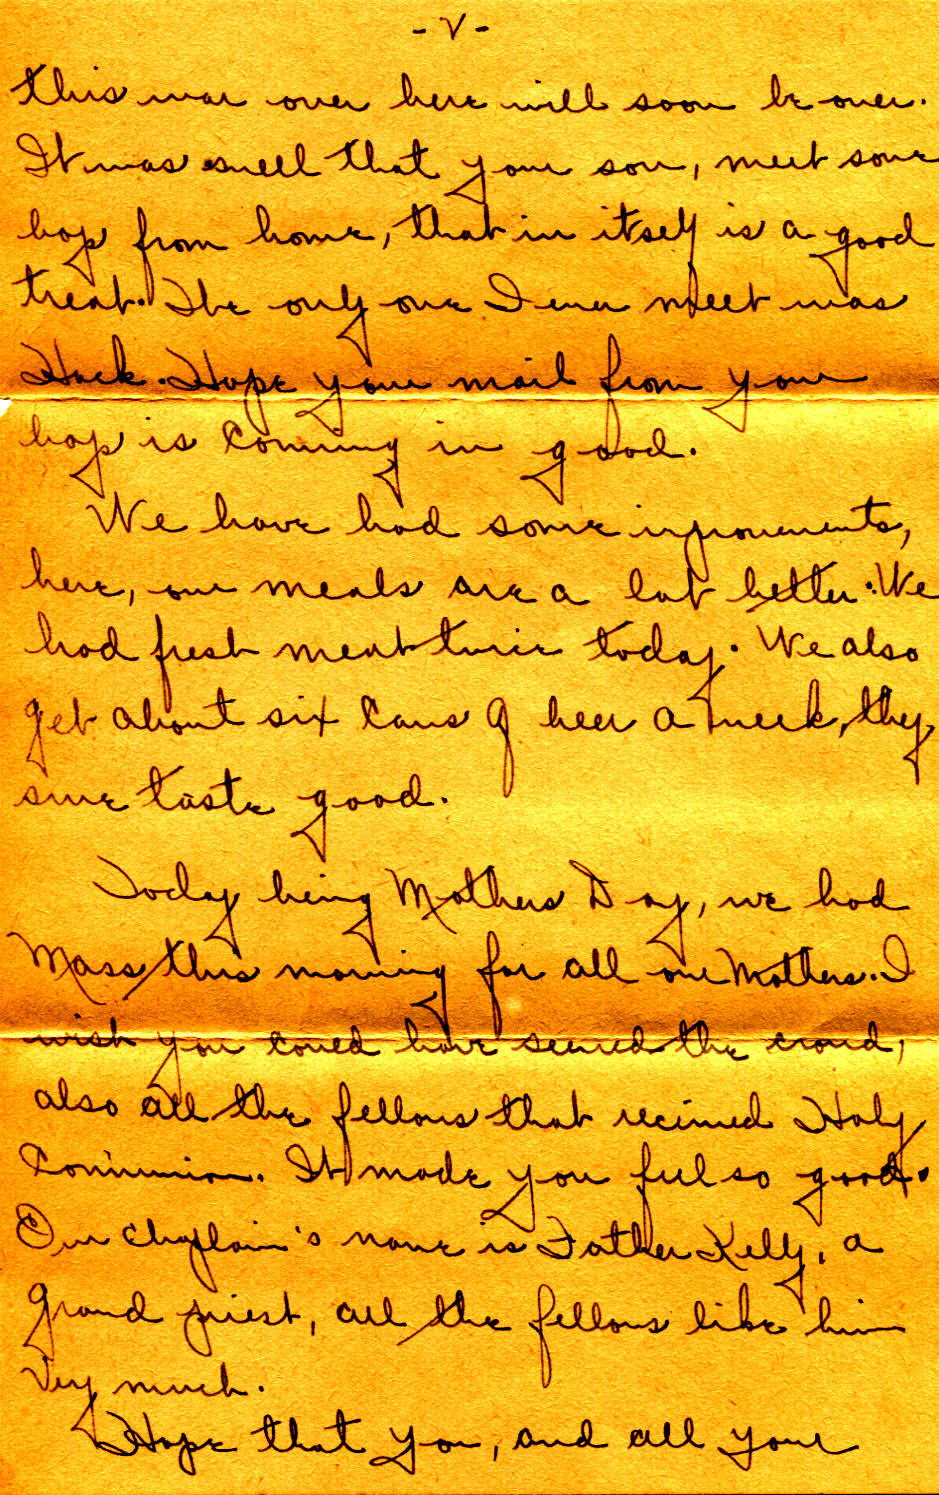 - V -
this war over here will soon be over.
It was swell that your son, meet some
boys from home, that in itself is a good
treat. The only one I ever meet was
Hack. Hope your mail from your
boys is coming in good.
We have had some inprovements,
here, our meals are a lot better. We
had fresh meat twice today. We also
get about six cans of beer a week, they
sure taste good.
Today being Mothers Day, we had
Mass this morning for all our Mothers. I
wish you coued have seened the croud,
also all the fellows that recieved Holy
Communion. It made you feel so good.
Our Chaplain's name is Father Kelly, a
grand priest, all the fellows like him
very much.
Hope that you, and all your